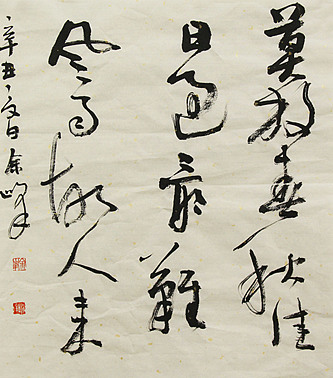 莫放春秋佳
日过最难
风雨故人来
辛丑夏日东峰